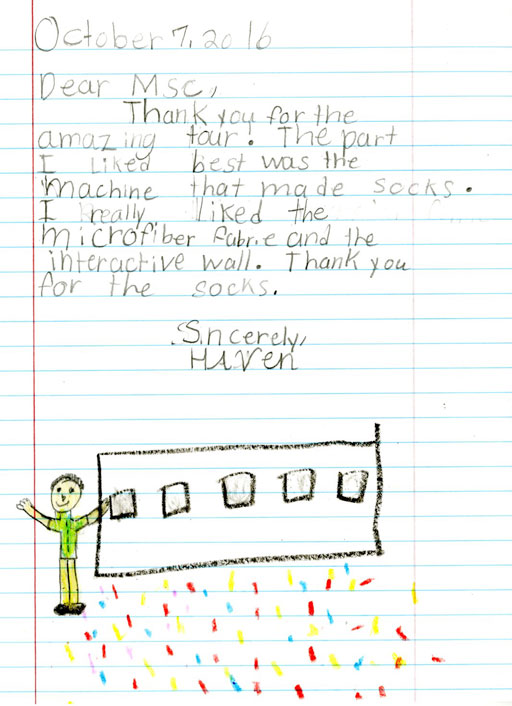 October 7, 2016
Dear Msc,
Thank you for the
amazing tour! The part
I Liked best was the
machine that made socks.
I really liked the
microfiber fabric and the
interactive wall. Thank you
for the socks.
Sincerely,
HAVen